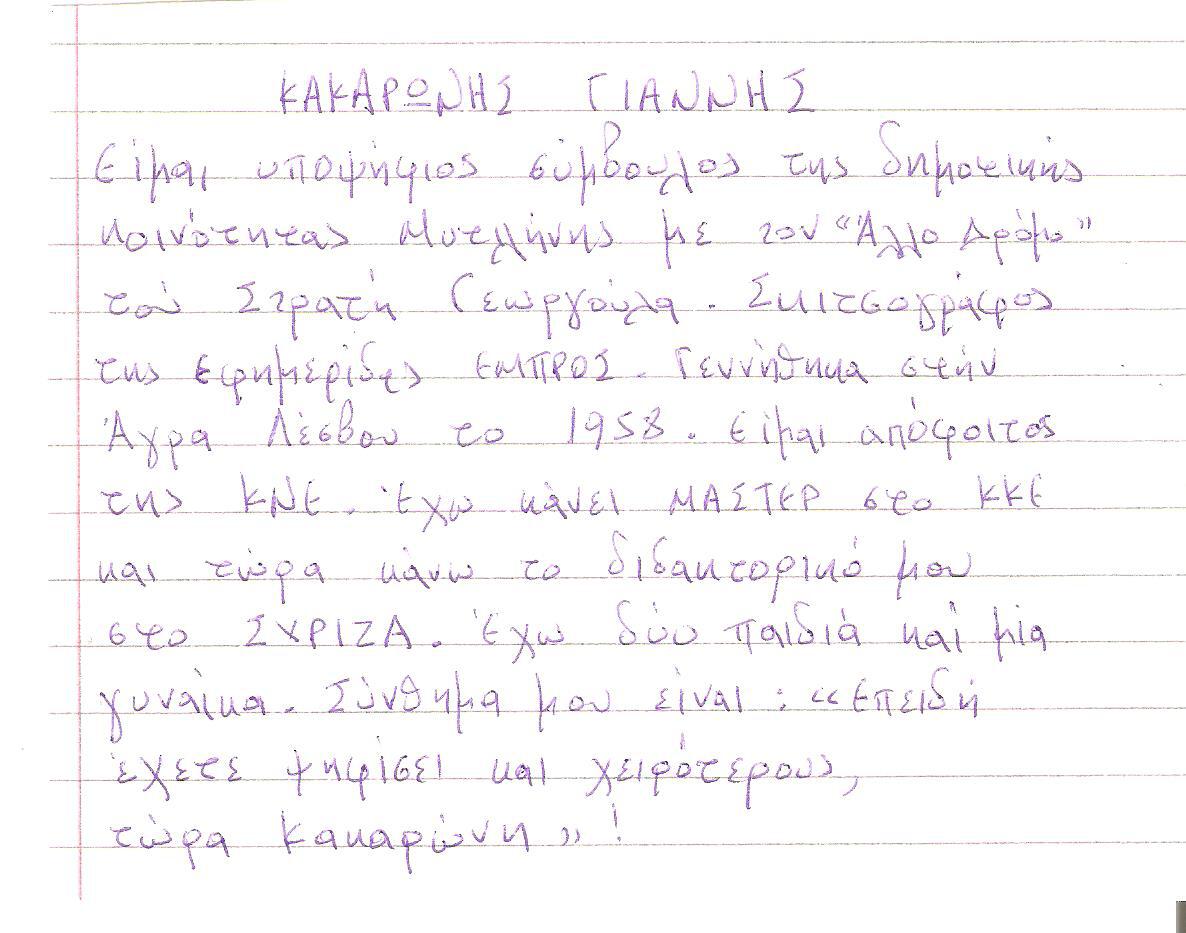 ΚΑΚΑΡΩΝΗΣ ΓΙΑΝΝΗΣ
Είμαι υποψήφιος σύμβουλος της δημοτικής
κοινότητας Μυτλήνης με τον "Άλλο Δρόμο"
του Στρατή Γεωργούλα. Σκιτσογράφος
της εφημερίδας ΕΜΠΡΟΣ. Γεννήθηκα στήν
Άγρα Λέσβου το 1958. Είμαι απόφοιτος
της ΚΝΕ. Έχω κάνει ΜΑΣΤΕΡ στο ΚΚΕ
και τώρα κάνω το διδακτορικό μου
στο ΣΥΡΙΖΑ. Έχω δύο παιδιά και μία
γυναίκα. Σύνθημα μου είναι : «Επειδή
έχετε ψηφίσει και χειρότερους,
τώρα Κακαρώνη» !